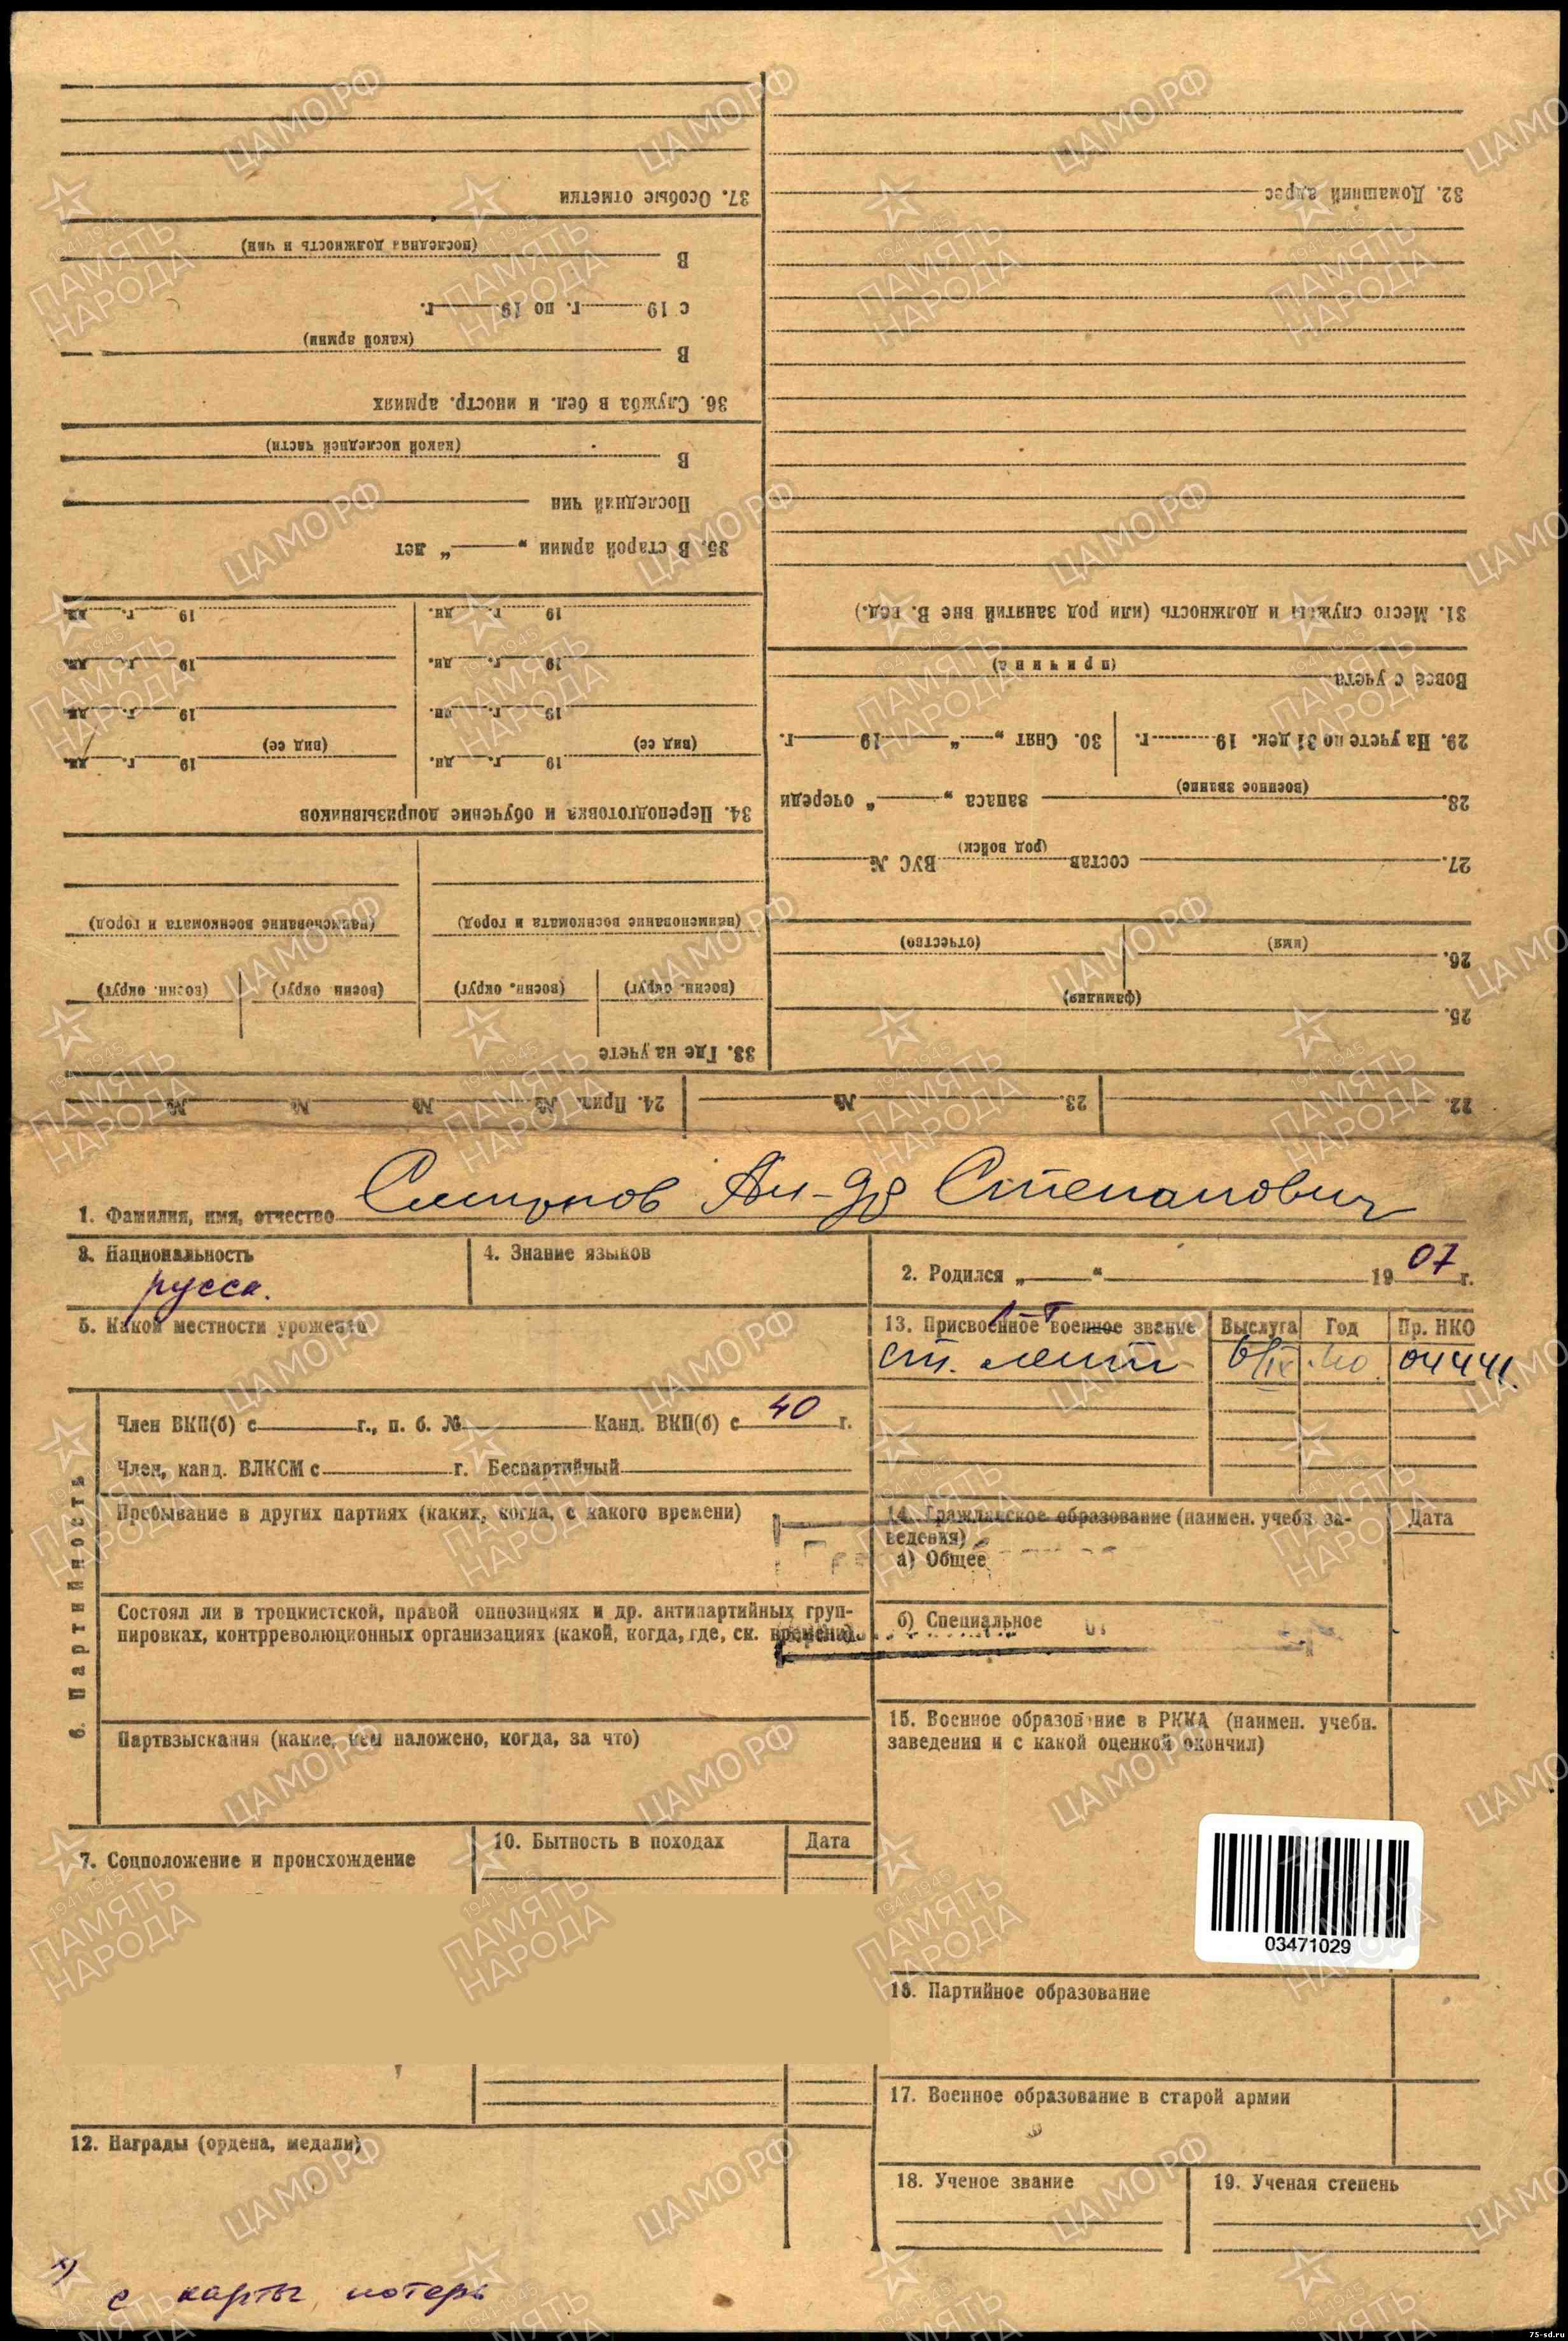 32. Домашний адрес
31. Место службы и должность (или род занятий вне В. вед.)
Вовсе с учета
(причина)
29. На учете по 31 дек. 19 г. 30. Снят „ “ 19 г.
28. (военное звание) запаса „ “ очереди
27. состав (род войск) ВУС №
26. (имя) (отчество)
25. (фамилия)
37. Особые отметки
В (последняя должность и чин)
с 19 г. по 19 г.
В (какой армии)
36. Служба в бел. и иностр. армиях
В (какой последней части)
Последний чин
35. В старой армии „ “ лет
19 г. дн. 19 г. дн.
19 г. дн. 19 г. дн.
19 г. дн. 19 г. дн.
19 г. дн. 19 г. дн.
(вид ее) (вид ее)
34. Переподготовка и обучение допризывников
(наименование военкомата и город) (наименование военкомата и город)
(военн. округ) (военн. округ) (военн. округ) (военн. округ)
33. Где на учете
22. 23. № 24. Прип. № № № №
1. Фамилия, имя, отчество Смирнов Ан-др Степанович
3. Национальность
русск.
4. Знание языков
2. Родился „ “ 1907 г.
5. Какой местности уроженец
13. Присвоенное военное звание Выслуга Год Пр. НКО
ст. лейт 6/IX 40 04441
6. Партийность
Член ВКП(б) с г., п. б. № Канд. ВКП(б) с 40 г.
Член, канд. ВЛКСМ с г. Беспартийный
Пребывание в других партиях (каких, когда, с какого времени)
14. Гражданское образование (наимен. учебн. за-
ведения)
Дата
а) Общее
Состоял ли в троцкистской, правой оппозициях и др. антипартийных груп-
пировках, контрреволюционных организациях (какой, когда, где, ск. времени)
б) Специальное
Партвзыскания (какие, кем наложено, когда, за что)
15. Военное образование в РККА (наимен. учебн.
заведения и с какой оценкой окончил)
7. Соцположение и происхождение
10. Бытность в походах Дата
03471029
16. Партийное образование
17. Военное образование в старой армии
12. Награды (ордена, медали)
18. Ученое звание 19. Ученая степень
с карты потерь
ЦАМО РФ
1941-1945
ПАМЯТЬ
НАРОДА
75-sd.ru